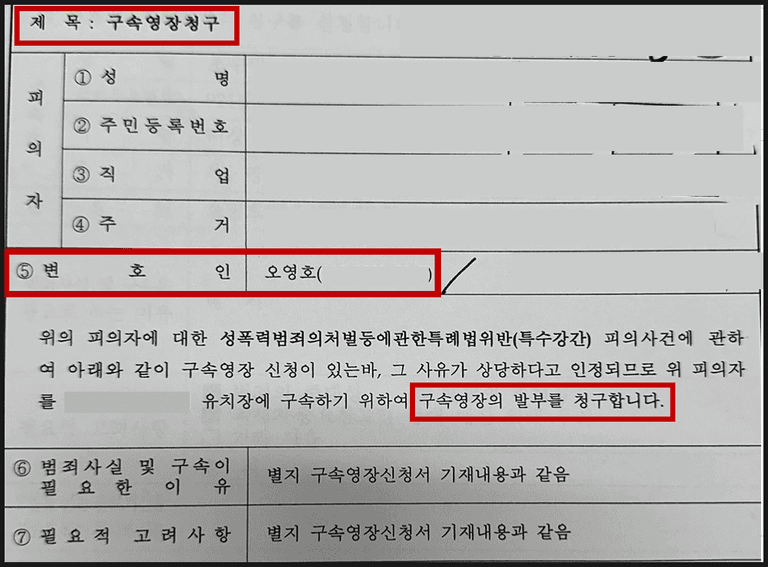 제 목 : 구속영장청구
피의자
① 성 명
② 주민등록번호
③ 직 업
④ 주 거
⑤ 변 호 인 오영호( )
위의 피의자에 대한 성폭력범죄의처벌등에관한특례법위반(특수강간) 피의사건에 관하
여 아래와 같이 구속영장 신청이 있는바, 그 사유가 상당하다고 인정되므로 위 피의자
를 유치장에 구속하기 위하여 구속영장의 발부를 청구합니다.
⑥ 범죄사실 및 구속이
필 요 한 이 유
별지 구속영장신청서 기재내용과 같음
⑦ 필요적 고려사항 별지 구속영장신청서 기재내용과 같음